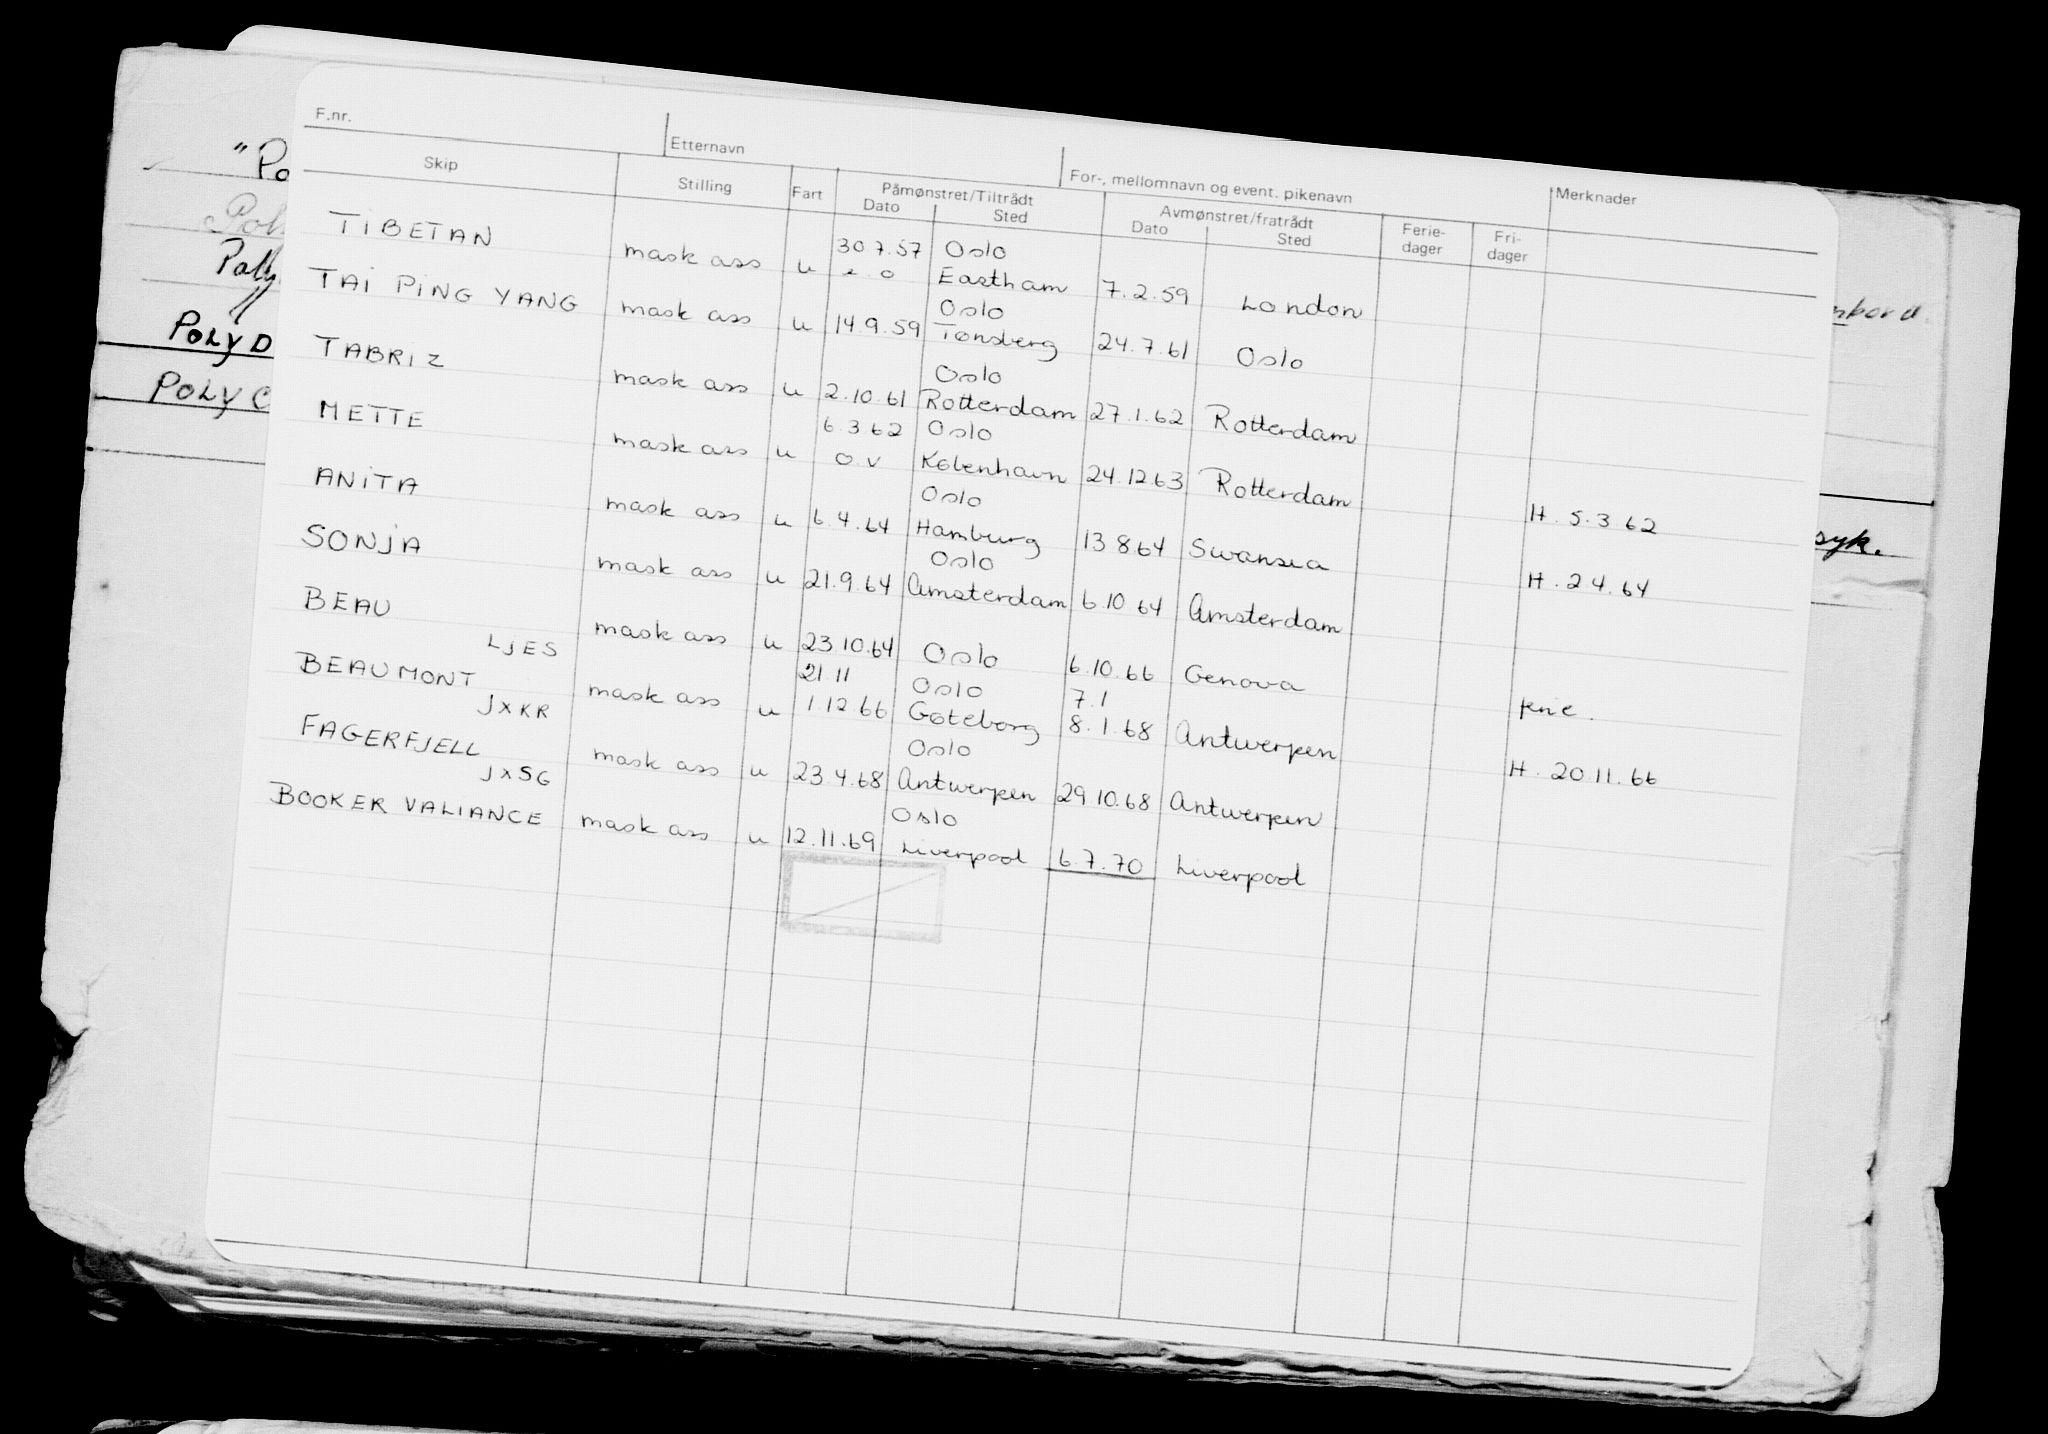 F.nr. Etternavn For-, mellomnavn og event. pikenavn Merknader
Skip Stilling Fart Påmønstret/Tiltrådt Avmønstret/fratrådt Ferie- Fri-
Dato Sted Dato Sted dager dager
30.7.57 Oslo
TIBETAN mask ass u Eastham 7.2.59 London
Oslo
TAI PING YANG mask ass u 14.9.59 Tønsberg 24.7.61 Oslo
Oslo
TABRIZ mask ass u 2.10.61 Rotterdam 27.1.62 Rotterdam
6.3.62 Oslo
METTE mask ass u O.V København 24.12.63 Rotterdam H. 5.3.62
Oslo
ANITA mask ass u 6.4.64 Hamburg 13.8.64 Swansea H. 2.4.64
Oslo
SONJA mask ass u 21.9.64 Amsterdam 6.10.64 Amsterdam
BEAU mask ass u 23.10.64 Oslo 6.10.66 Genova ferie.
LJES 21.11 Oslo 7.1
BEAUMONT mask ass u 1.12.66 Gøteborg 8.1.68 Antwerpen H. 20.11.66
JXKR Oslo
FAGERFJELL mask ass u 23.4.68 Antwerpen 29.10.68 Antwerpen
JXSG Oslo
BOOKER VALIANCE mask ass u 12.11.69 Liverpool 6.7.70 Liverpool
"Po
Poly
POLYD
POLYC
syk.